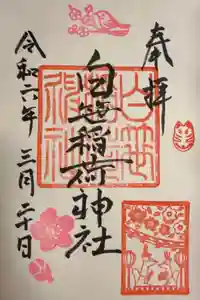 奉拝
白笹稲荷神社
令和六年 三月二十日
白笹稲荷神社